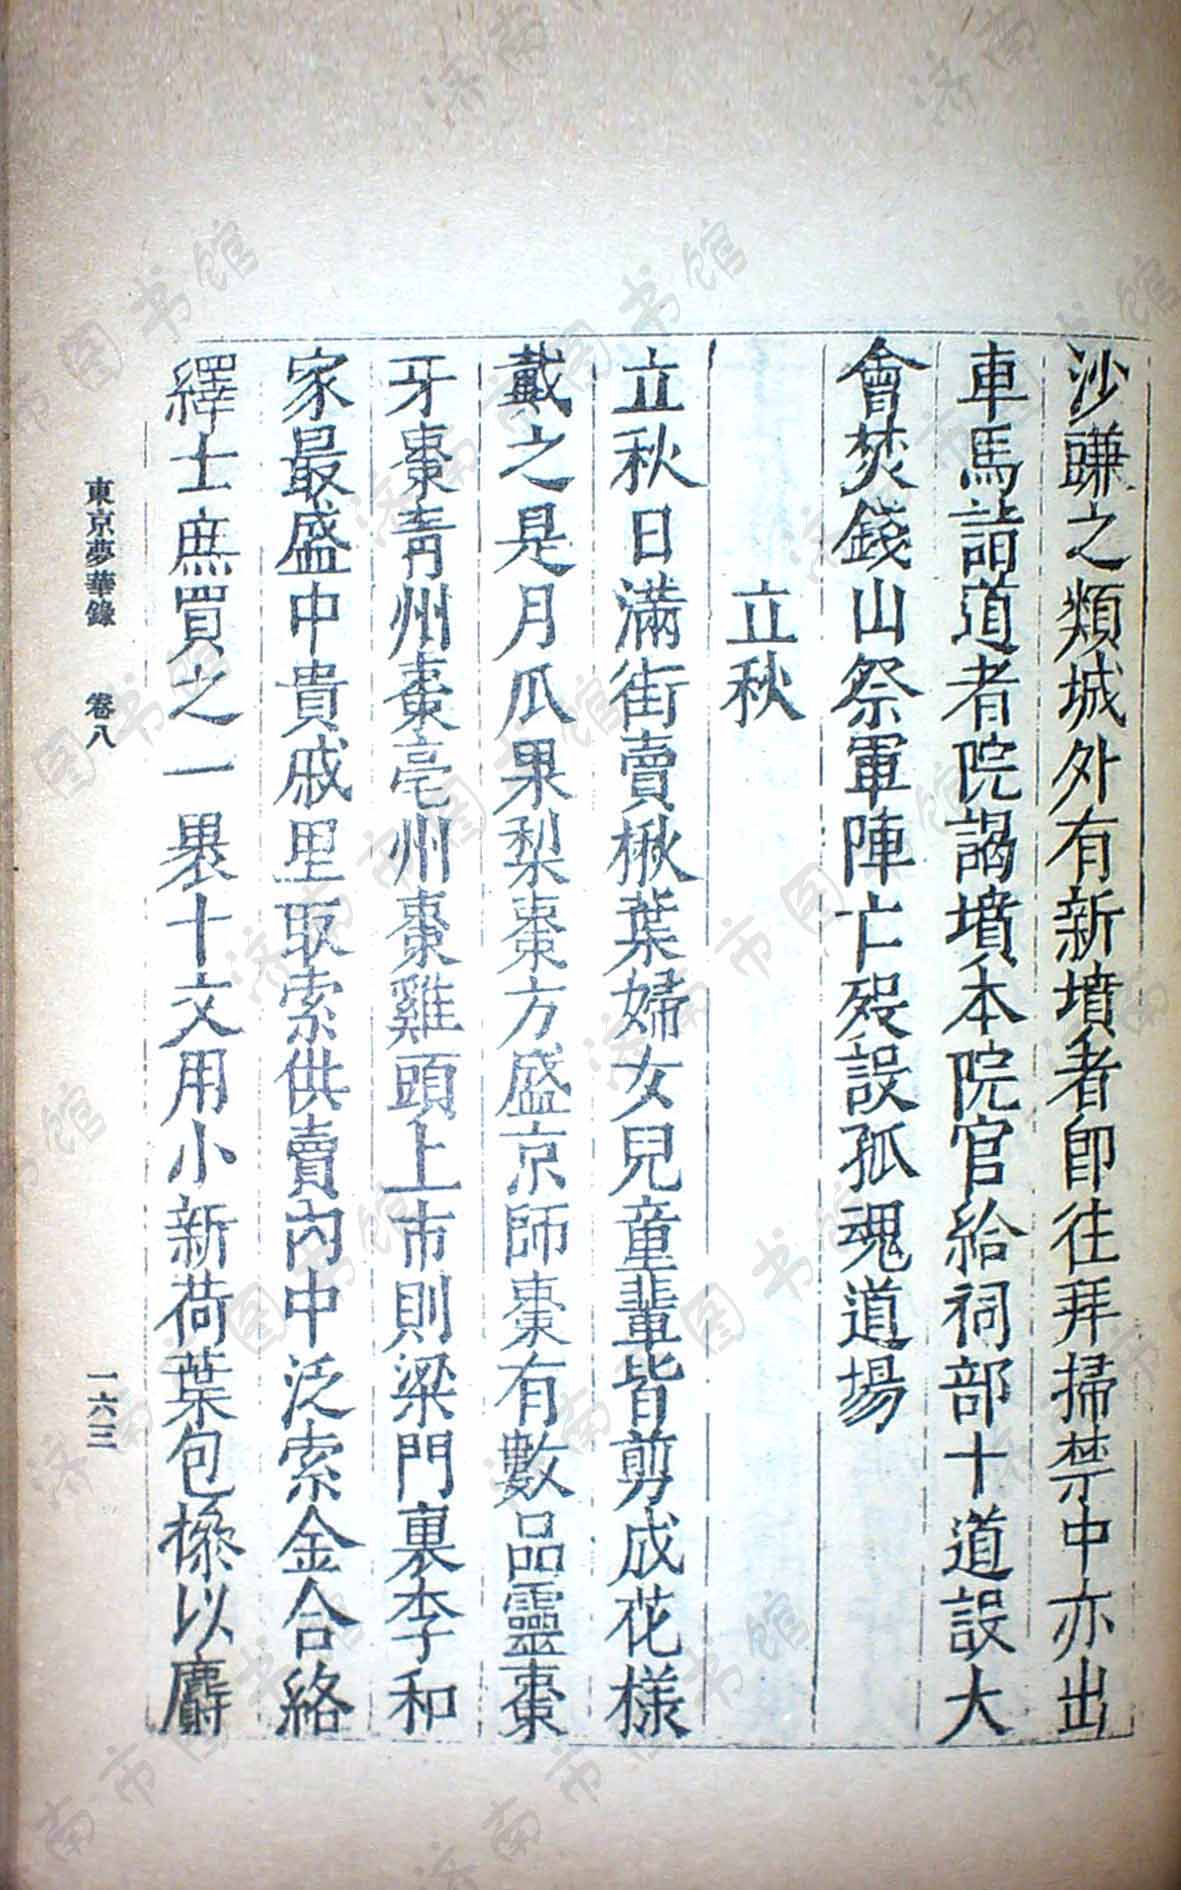 沙𧸖之類城外有新墳者卽往拜掃禁中亦出
車馬詣道者院謁墳本院官給祠部十道設大
會焚錢山祭軍陣亡殁設孤魂道場
立秋
立秋日滿街賣楸葉婦女兒童輩皆剪成花樣
戴之是月瓜果梨棗方盛京師棗有數品靈棗
牙棗青州棗亳州棗雞頭上市則梁門裏李和
家最盛中貴戚里取索供賣內中泛索金合絡
繹士庶買之一裹十文用小新荷葉包糝以麝
東京夢華錄 卷八
一六三
濟南市图书馆